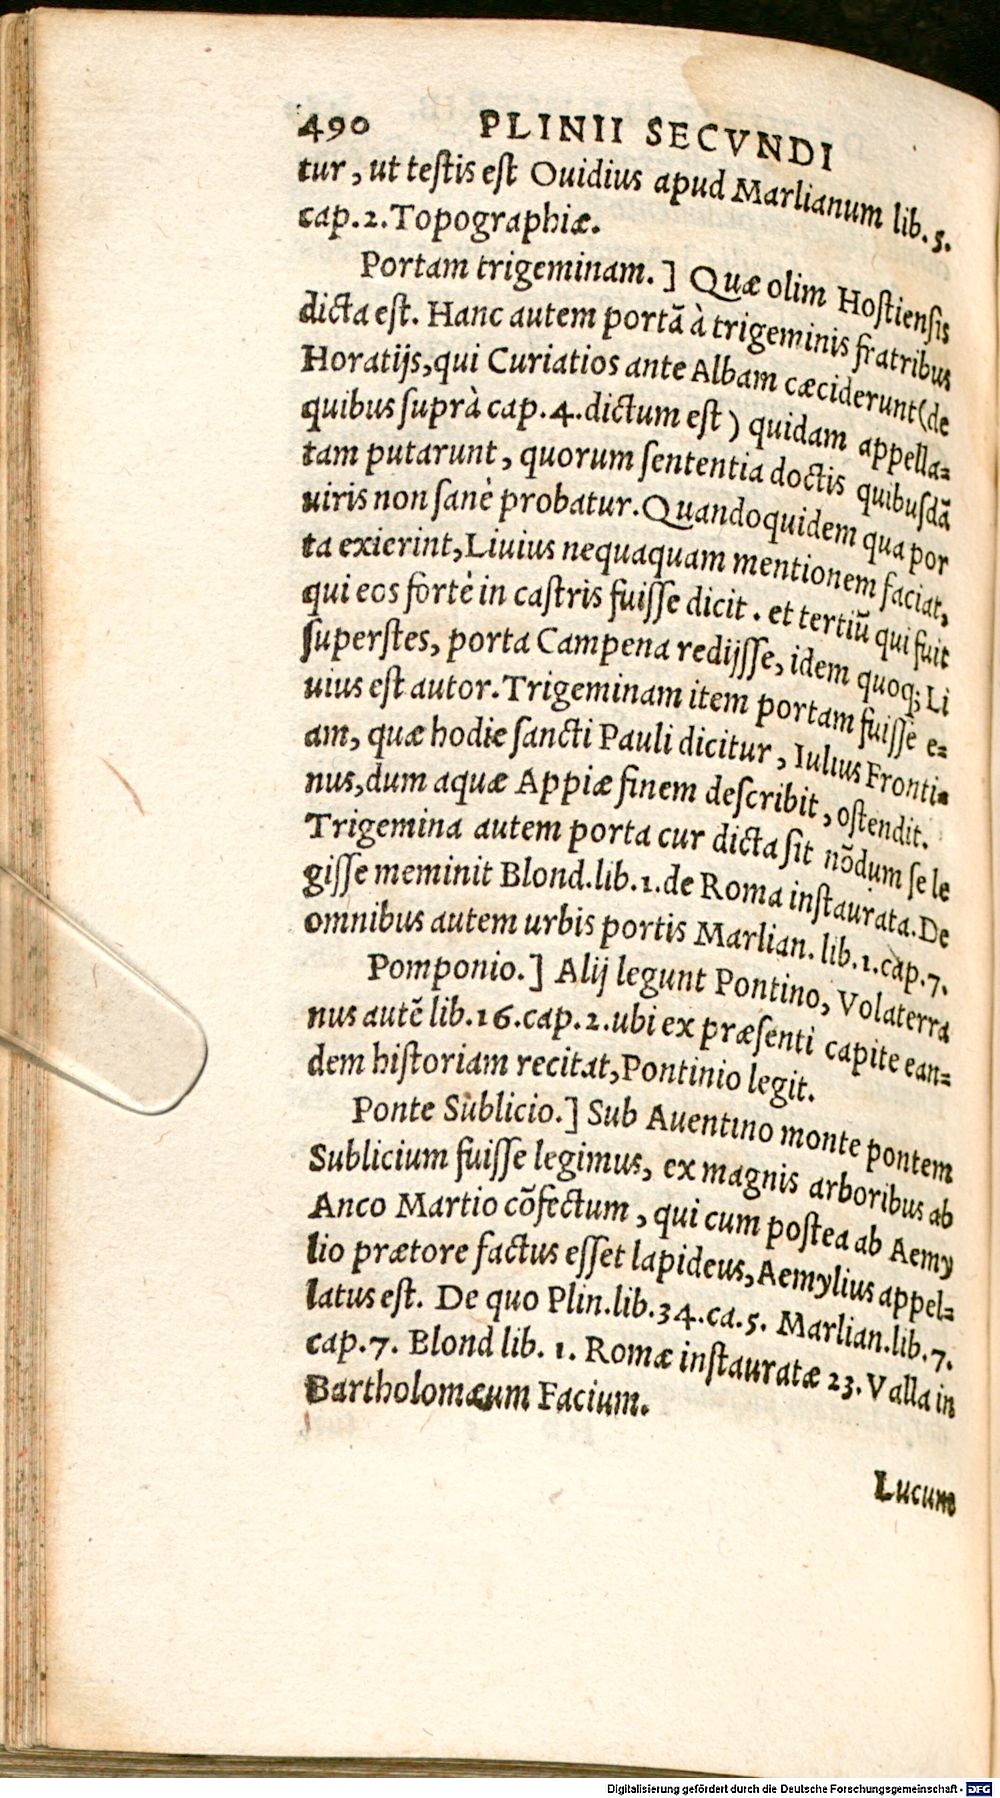 490 PLINII SECVNDI
tur, ut testis est Ouidius apud Marlianum lib. 5.
cap. 2. Topographiæ.
Portam trigeminam. ] Quæ olim Hostiensis
dicta est. Hanc autem portã à trigeminis fratribus
Horatijs, qui Curiatios ante Albam cæciderunt (de
quibus suprà cap. 4. dictum est ) quidam appella=
tam putarunt, quorum sententia doctis quibusdã
uiris non sanè probatur. Quandoquidem qua por
ta exierint, Liuius nequaquam mentionem faciat,
qui eos fortè in castris fuisse dicit. et tertiũ qui fuit
superstes, porta Campena redijsse, idem quoq; Li
uius est autor. Trigeminam item portam fuisse e=
am, quæ hodie sancti Pauli dicitur, Iulius Fronti=
nus, dum aquæ Appiæ finem describit, ostendit.
Trigemina autem porta cur dicta sit nõdum se le
gisse meminit Blond. lib. 1. de Roma instaurata. De
omnibus autem urbis portis Marlian. lib. 1. cap. 7.
Pomponio. ] Alij legunt Pontino, Volaterra
nus autẽ lib. 16. cap. 2. ubi ex præsenti capite ean=
dem historiam recitat, Pontinio legit.
Ponte Sublicio. ] Sub Auentino monte pontem
Sublicium fuisse legimus, ex magnis arboribus ab
Anco Martio cõfectum, qui cum postea ab Aemy
lio prætore factus esset lapideus, Aemylius appel=
latus est. De quo Plin. lib. 34. ca. 5. Marlian. lib. 7.
cap. 7. Blond lib. 1. Romæ instauratæ 23. Valla in
Bartholomæum Facium.
Lucum
Digitalisierung gefördert durch die Deutsche Forschungsgemeinschaft - DFG